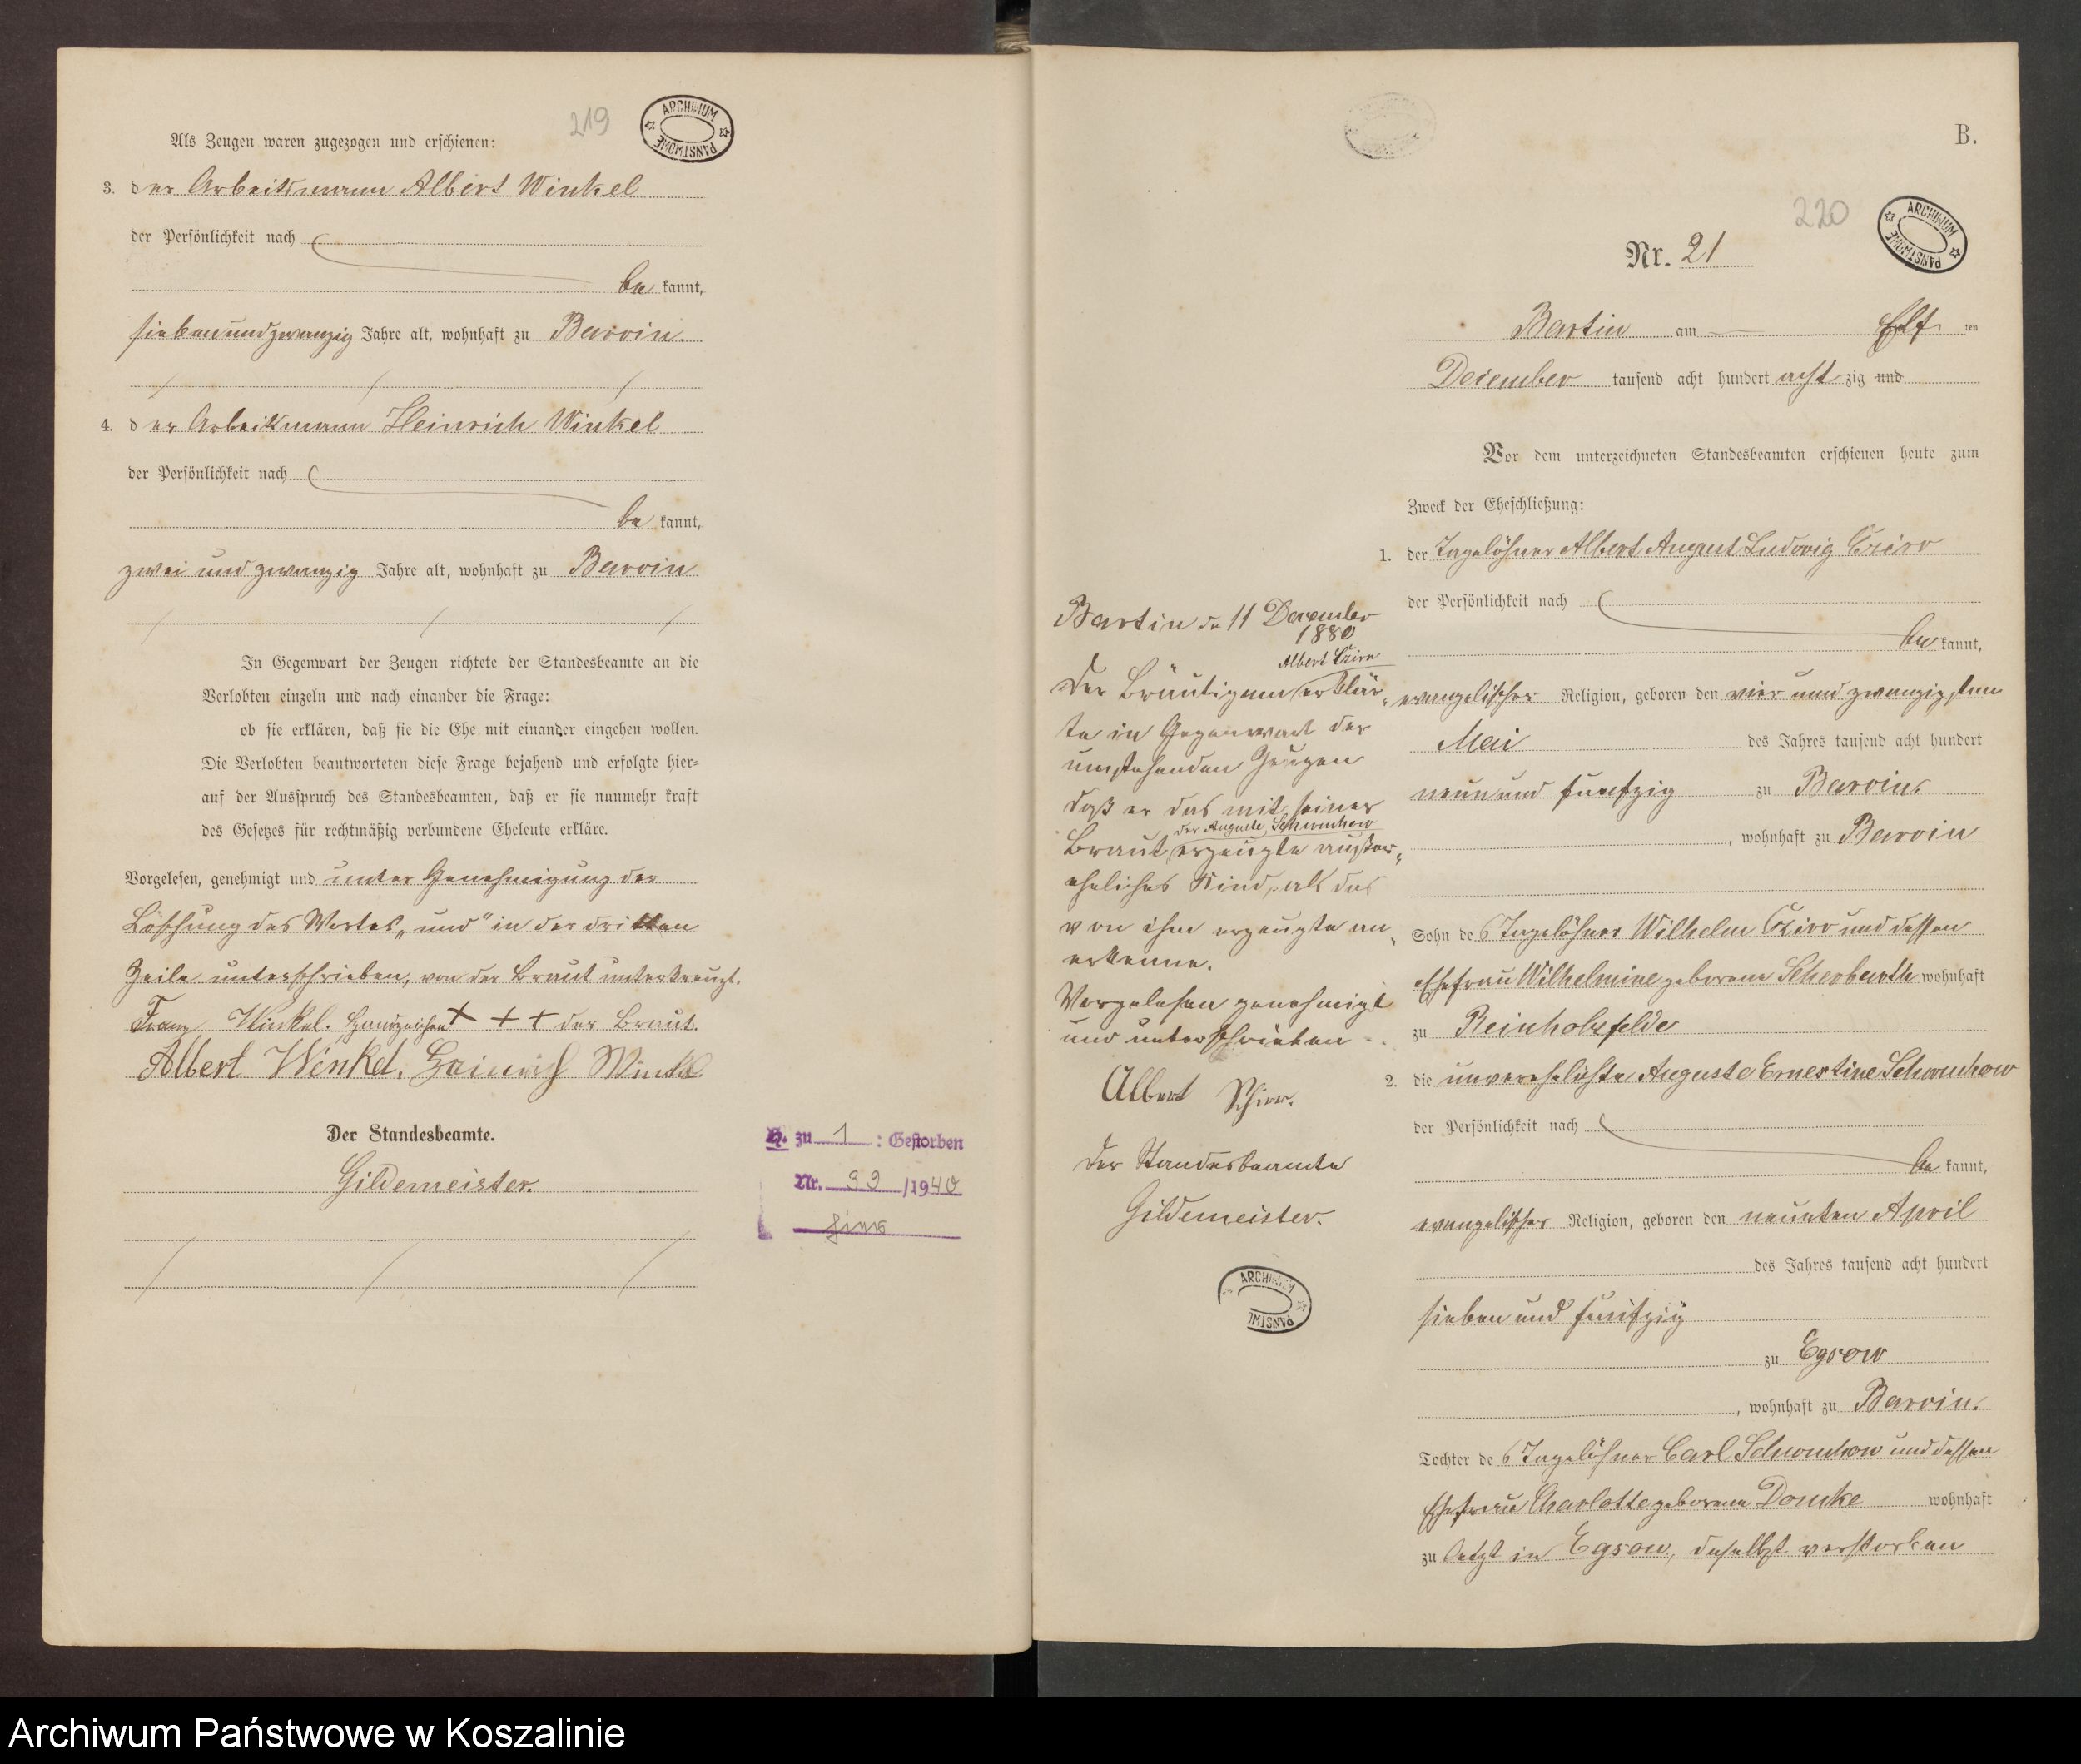 219
ARCHIWUM PAŃSTWOWE
Als Zeugen waren zugezogen und erschienen:
3. der Arbeitsmann Albert Winkel
der Persönlichkeit nach
be kannt,
siebenundzwanzig Jahre alt, wohnhaft zu Barvin.
4. der Arbeitsmann Heinrich Winkel
der Persönlichkeit nach
be kannt,
zwei und zwanzig Jahre alt, wohnhaft zu Barvin
In Gegenwart der Zeugen richtete der Standesbeamte an die
Verlobten einzeln und nach einander die Frage:
ob sie erklären, daß sie die Ehe mit einander eingehen wollen.
Die Verlobten beantworteten diese Frage bejahend und erfolgte hier-
auf der Ausspruch des Standesbeamten, daß er sie nunmehr kraft
des Gesetzes für rechtmäßig verbundene Eheleute erkläre.
Vorgelesen, genehmigt und unter Genehmigung der
Löschung des Wortes „und" in der dritten
Zeile unterschrieben, von der Braut unterkreuzt.
Franz Winkel. Handzeichen + + + der Braut.
Albert Winkel. Heinrich Winkel
Der Standesbeamte.
Gildemeister.
H. zu 1 : Gestorben
Nr. 39 /1940
B.
220
ARCHIWUM PAŃSTWOWE
Nr. 21
Bartin am Elf ten
Dezember tausend acht hundert acht zig und
Vor dem unterzeichneten Standesbeamten erschienen heute zum
Zweck der Eheschließung:
1. der Tagelöhner Albert August Ludwig Czirr
der Persönlichkeit nach
be kannt,
evangelischer Religion, geboren den vier und zwanzigsten
Mai des Jahres tausend acht hundert
neun und funfzig zu Barvin
, wohnhaft zu Barvin
Sohn des Tagelöhner Wilhelm Czirr und dessen
Ehefrau Wilhelmine geborene Scherbarth wohnhaft
zu Reinholzfelde
2. die unverehelichte Auguste Ernestine Schwuchow
der Persönlichkeit nach
be kannt,
evangelischer Religion, geboren den neunten April
des Jahres tausend acht hundert
sieben und funfzig
zu Egsow
, wohnhaft zu Barvin.
Tochter des Tagelöhner Carl Schwuchow und dessen
Ehefrau Charlotte geborene Domke wohnhaft
zu letzt in Egsow, daselbst verstorben
Bartin den 11 December
1880
Albert Czirr
Der Bräutigam erklär-
te in Gegenwart der
umstehenden Zeugen
daß er das mit seiner
der Auguste Schwuchow
Braut erzeugte außer-
eheliches Kind, als das
von ihm erzeugte an-
erkenne.
Vorgelesen genehmigt
und unterschrieben
Albert Schirr.
Der Standesbeamte
Gildemeister.
ARCHIWUM
Archiwum Państwowe w Koszalinie